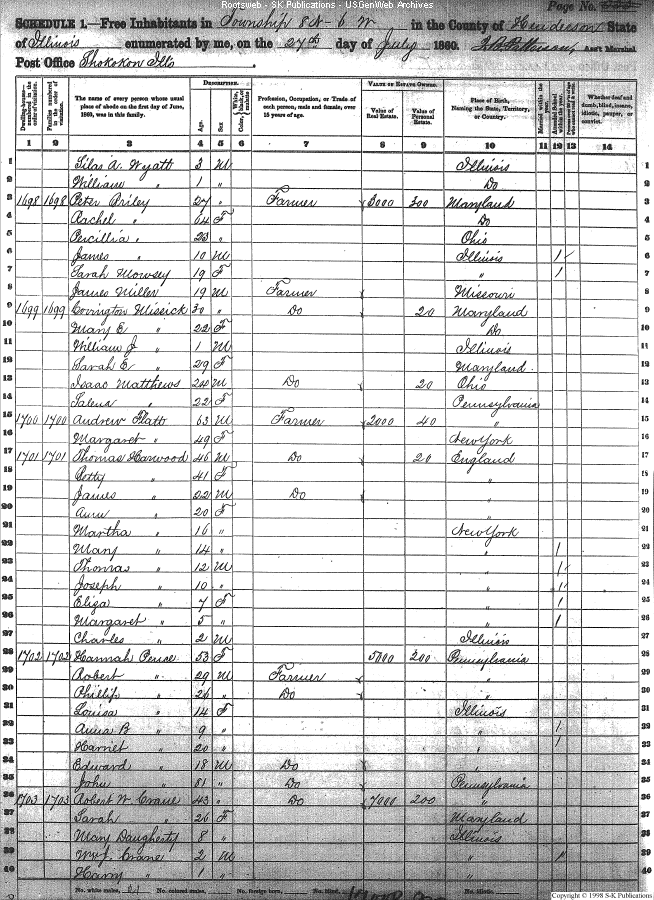 Rootsweb - SK Publications - USGenWeb Archives
Page No.
SCHEDULE 1.—Free Inhabitants in Township 8N - 6 W in the County of Henderson State
of Illinois enumerated by me, on the 27th day of July 1860. Ass't Marshal
Post Office Shokokon Ills
Dwelling-houses—numbered in the order of visitation.
Families numbered in the order of visitation.
The name of every person whose usual place of abode on the first day of June, 1860, was in this family.
DESCRIPTION.
Age.
Sex
Color, White, black, or mulatto.
Profession, Occupation, or Trade of each person, male and female, over 15 years of age.
VALUE OF ESTATE OWNED.
Value of Real Estate.
Value of Personal Estate.
Place of Birth, Naming the State, Territory, or Country.
Married within the year.
Attended School within the year.
Whether deaf and dumb, blind, insane, idiotic, pauper, or convict.
1 2 3 4 5 6 7 8 9 10 11 12 13 14
1 Silas A. Wyatt 3 M Illinois 1
2 William " 1 " Do 2
3 1698 1698 Peter Briley 27 " Farmer 3000 300 Maryland 3
4 Rachel " 64 F Do 4
5 Percillia " 23 " Ohio 5
6 James " 10 M Illinois 1 6
7 Sarah Mowsey 19 F " 1 7
8 James Miller 19 M Farmer Missouri 8
9 1699 1699 Covington Missick 30 " Do 20 Maryland 9
10 Mary E " 22 F Do 10
11 William J " 1 M Illinois 11
12 Sarah E " 29 F Maryland 12
13 Isaac Matthews 24 M Do 20 Ohio 13
14 Salena " 22 F Pennsylvania 14
15 1700 1700 Andrew Platt 63 M Farmer 2000 40 " 15
16 Margaret " 49 F New York 16
17 1701 1701 Thomas Harwood 46 M Do 20 England 17
18 41 F " 18
19 James " 22 M Do " 19
20 Ann " 20 F " 20
21 Martha " 16 " New York 21
22 Mary " 14 " " 1 22
23 Thomas " 12 M " 1 23
24 Joseph " 10 " " 1 24
25 Eliza " 7 F " 1 25
26 Margaret " 5 " " 1 26
27 Charles " 2 M Illinois 27
28 1702 1702 Hannah Pence 53 F 5000 200 Pennsylvania 28
29 Robert " 29 M Farmer "
30 Phillip " 26 " Do "
31 Louisa " 14 F Illinois 31
32 Anna B " 9 " " 1
33 Harriet " 20 " " 1
34 Edward " 18 M Do "
35 John " 81 " Do Pennsylvania
36 1703 1703 Robert W. Crane 43 " Do 7000 200 "
Sarah " 26 F Maryland
Mary Daugherty 8 " Illinois
39 Wm J. Crane 2 M " 39
40 Harry " 1 " " 40
No. white males, No. colored males, No. foreign born, No. blind,
Copyright © 1998 S-K Publications